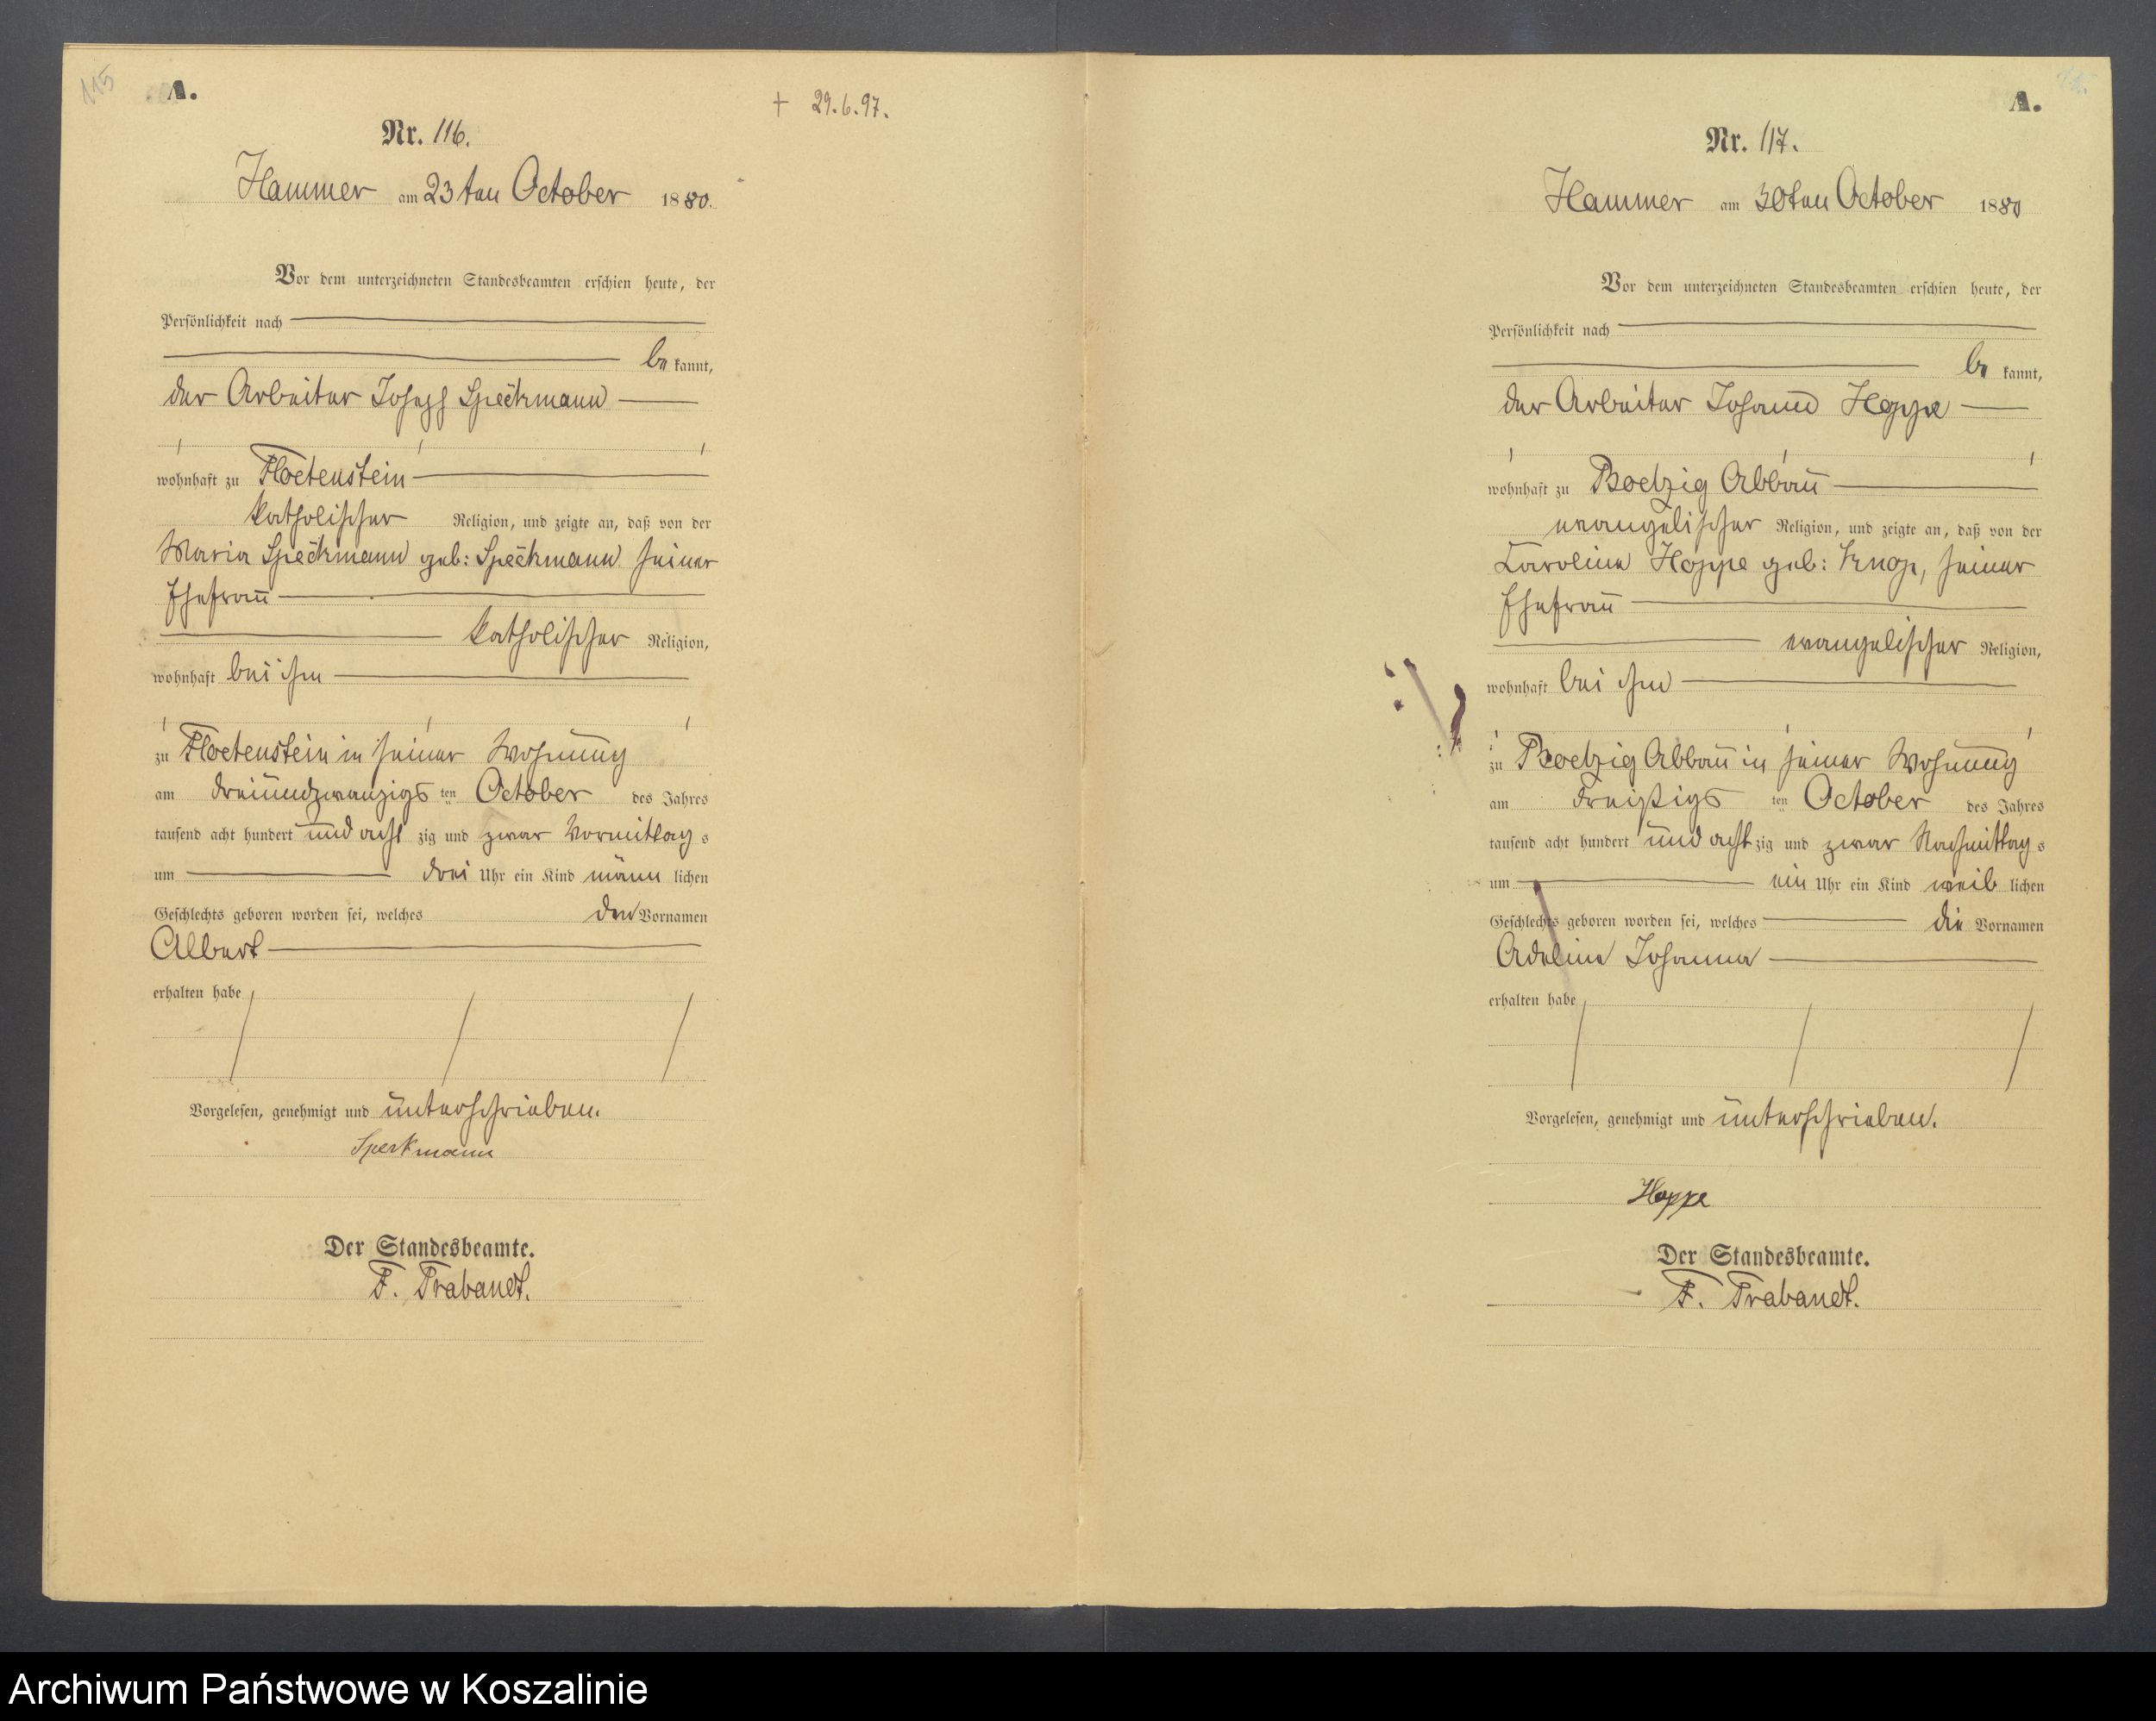 115
A.
+ 29.6.97.
Nr. 116.
Hammer am 23ten October 1880.
Vor dem unterzeichneten Standesbeamten erschien heute, der
Persönlichkeit nach
be kannt,
der Arbeiter Joseph Speckmann
wohnhaft zu Floetenstein
katholischer Religion, und zeigte an, daß von der
Maria Speckmann geb: Speckmann seiner
Ehefrau
katholischer Religion,
wohnhaft bei ihm
zu Floetenstein in seiner Wohnung
am dreiundzwanzigs ten October des Jahres
tausend acht hundert und acht zig und zwar Vormittag s
um drei Uhr ein Kind männ lichen
Geschlechts geboren worden sei, welches den Vornamen
Albert
erhalten habe
Vorgelesen, genehmigt und unterschrieben.
Speckmann
Der Standesbeamte.
F. Trabandt.
A.
Nr. 117.
Hammer am 30ten October 1880
Vor dem unterzeichneten Standesbeamten erschien heute, der
Persönlichkeit nach
be kannt,
der Arbeiter Johann Hoppe
wohnhaft zu Boelzig Abbau
evangelischer Religion, und zeigte an, daß von der
Caroline Hoppe geb: Knop, seiner
Ehefrau
evangelischer Religion,
wohnhaft bei ihm
zu Boelzig Abbau in seiner Wohnung
am dreißigs ten October des Jahres
tausend acht hundert und acht zig und zwar Nachmittag s
um ein Uhr ein Kind weib lichen
Geschlechts geboren worden sei, welches die Vornamen
Adeline Johanna
erhalten habe
Vorgelesen, genehmigt und unterschrieben.
Hoppe
Der Standesbeamte.
F. Trabandt.
Archiwum Państwowe w Koszalinie